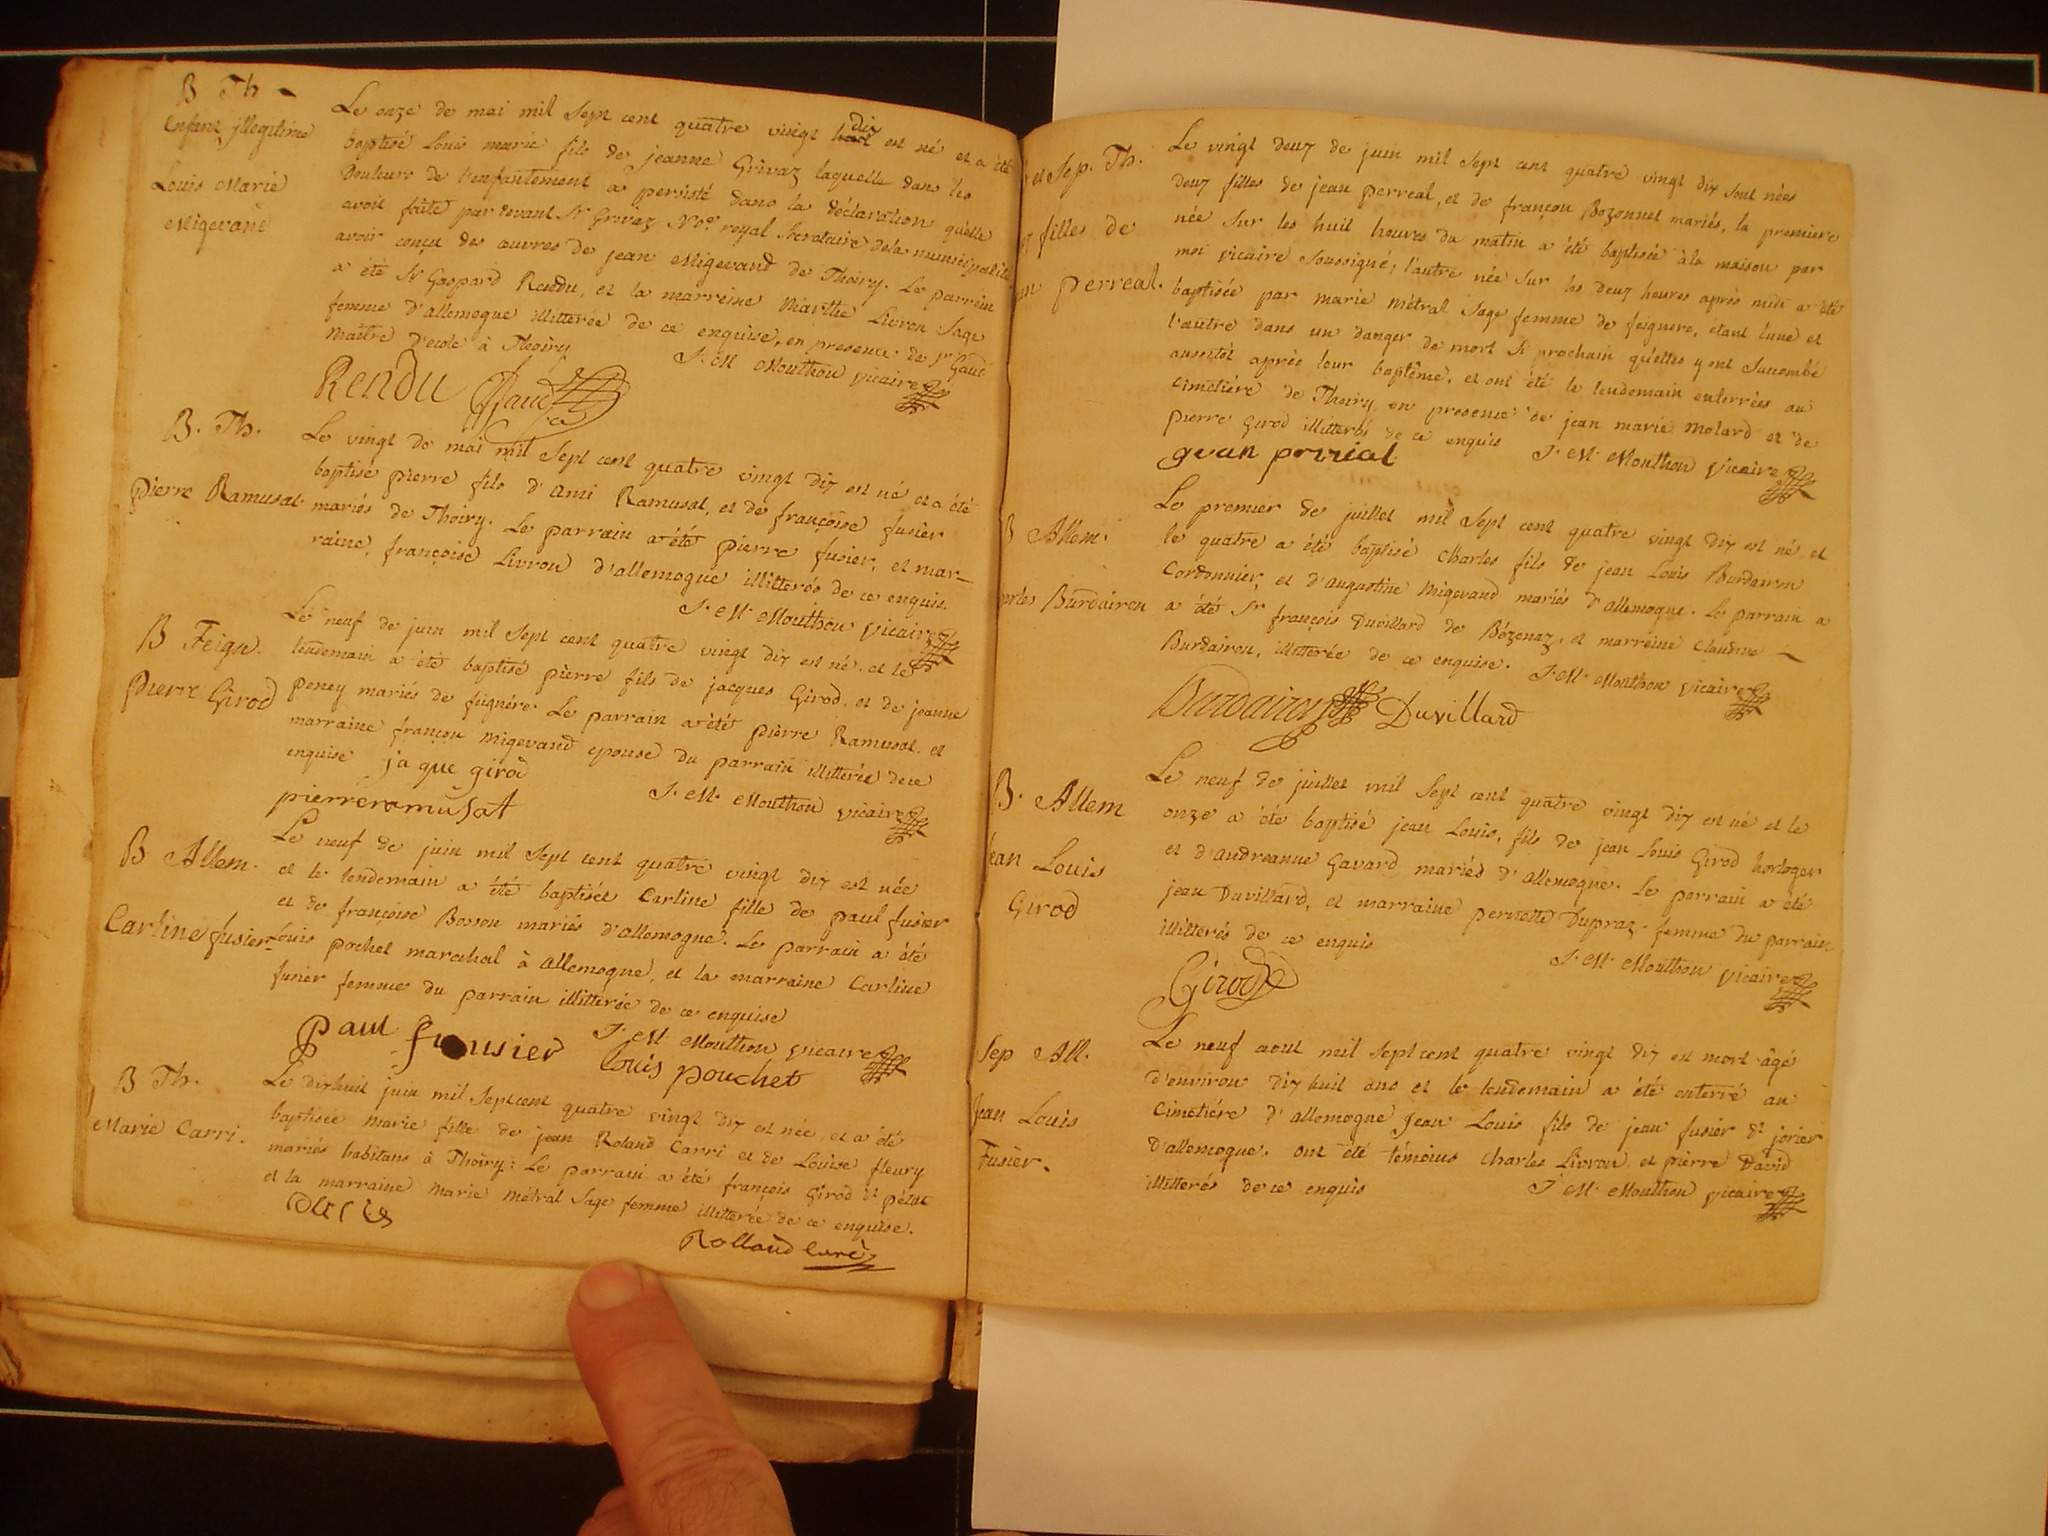 B Th -
Enfant jllegitime
Louis Marie
Migevand
Le onze de mai mil Sept cent quatre vingt dix est né et a été
baptisé Louis marie fils de jeanne Grivaz laquelle dans les
Douleurs de l'enfantement a persisté dans la déclaration qu'elle
avoit faite par devant Sr Grivaz Nore royal Secretaire de la municipalité
avoir conçu des œuvres de jean Migevand de Thoiry. Le parrein
a été Sr Gaspard Rendu, et la marreine Marthe Livron Sage
femme d'allemogne illitterée de ce enquise, en presence de Sr Gaud
maître d'ecole à Thoiry
J. M. Mouthon vicaire
Rendu Gaud
B. Th.
Pierre Ramusat.
Le vingt de mai mil Sept cent quatre vingt dix est né et a été
baptise pierre fils d'Ami Ramusat, et de françoise fusier
mariés de Thoiry. Le parrain a été pierre fusier, et mar-
raine, françoise Livron d'allemogne illitterés de ce enquis.
J. M. Mouthon vicaire
B Feign.
Pierre Girod
Le neuf de juin mil Sept cent quatre vingt dix est né et le
lendemain a été baptisé pierre fils de jacques Girod, et de jeanne
peney mariés de feignére. Le parrain a été pierre Ramusat et
marraine françon Migevand epouse du parrain illitterée de ce
enquise jaque girod
J. M. Mouthon vicaire
pierreramusat
B Allem.
Carline fusier
Le neuf de juin mil Sept cent quatre vingt dix est née
et le lendemain a été baptisée Carline fille de paul fusier
et de françoise Bosson mariés d'allemogne. Le parrain a été
Louis pochet marechal à allemogne, et la marraine Carline
fusier femme du parrain illitterée de ce enquise
J. M. Mouthon vicaire
paul fusier louis pouchet
B Th.
Marie Carri.
Le dixhuit juin mil Sept cent quatre vingt dix est née et a été
baptisée marie fille de jean Roland Carri et de Louise fleury
mariés habitans à Thoiry: Le parrain a été françois Girod dt pétet
et la marraine Marie métral Sage femme illitterée de ce enquise.
Rolland curé
et Sep. Th.
filles de
perreal.
Le vingt deux de juin mil Sept cent quatre vingt dix sont nées
deux filles de jean perreal, et de françon Bozonnet mariés, la premiere
née Sur les huit heures du matin a été baptisée à la maison par
moi vicaire Soussigné; l'autre née Sur les deux heures après midi a été
baptisée par marie métral Sage femme de feignere, étant l'une et
l'autre dans un danger de mort Si prochain qu'elles y ont Succombé
aussitôt après leur baptême, et ont été le lendemain enterrées au
Cimetiére de Thoiry en presence de jean marie Molard et de
pierre Girod illitterés de ce enquis
J. M. Mouthon vicaire
B Allem.
Burdairon
Le premier de juillet mil Sept cent quatre vingt dix est né, et
le quatre a été baptisé Charles fils de jean Louis Burdairon
Cordonnier, et d'augustine Migevand mariés d'allemogne. Le parrain a
a été Sr françois Duvillard de Bézenaz, et marreine Claudine
Burdairon, illitterée de ce enquise.
J. M. Mouthon vicaire
Burdairon Duvillard
B. Allem
jean Louis
Girod
Le neuf de juillet mil Sept cent quatre vingt dix est né et le
onze a été baptisé jean Louis, fils de jean Louis Girod horloger
et d'andreanne Gavard mariés d'allemogne. Le parrain a été
jean Duvillard, et marraine pernette Dupraz femme du parrain
illitterés de ce enquis
J. M. Mouthon vicaire
Girod
Sep All.
Jean Louis
Fusier.
Le neuf aout mil Sept cent quatre vingt dix est mort âgé
d'environ dix huit ans et le lendemain a été enterré au
Cimetiére d'allemogne Jean Louis fils de jean fusier dt jorier
d'allemogne. ont été témoins Charles Livron et pierre David
illitterés de ce enquis
J. M. Mouthon vicaire